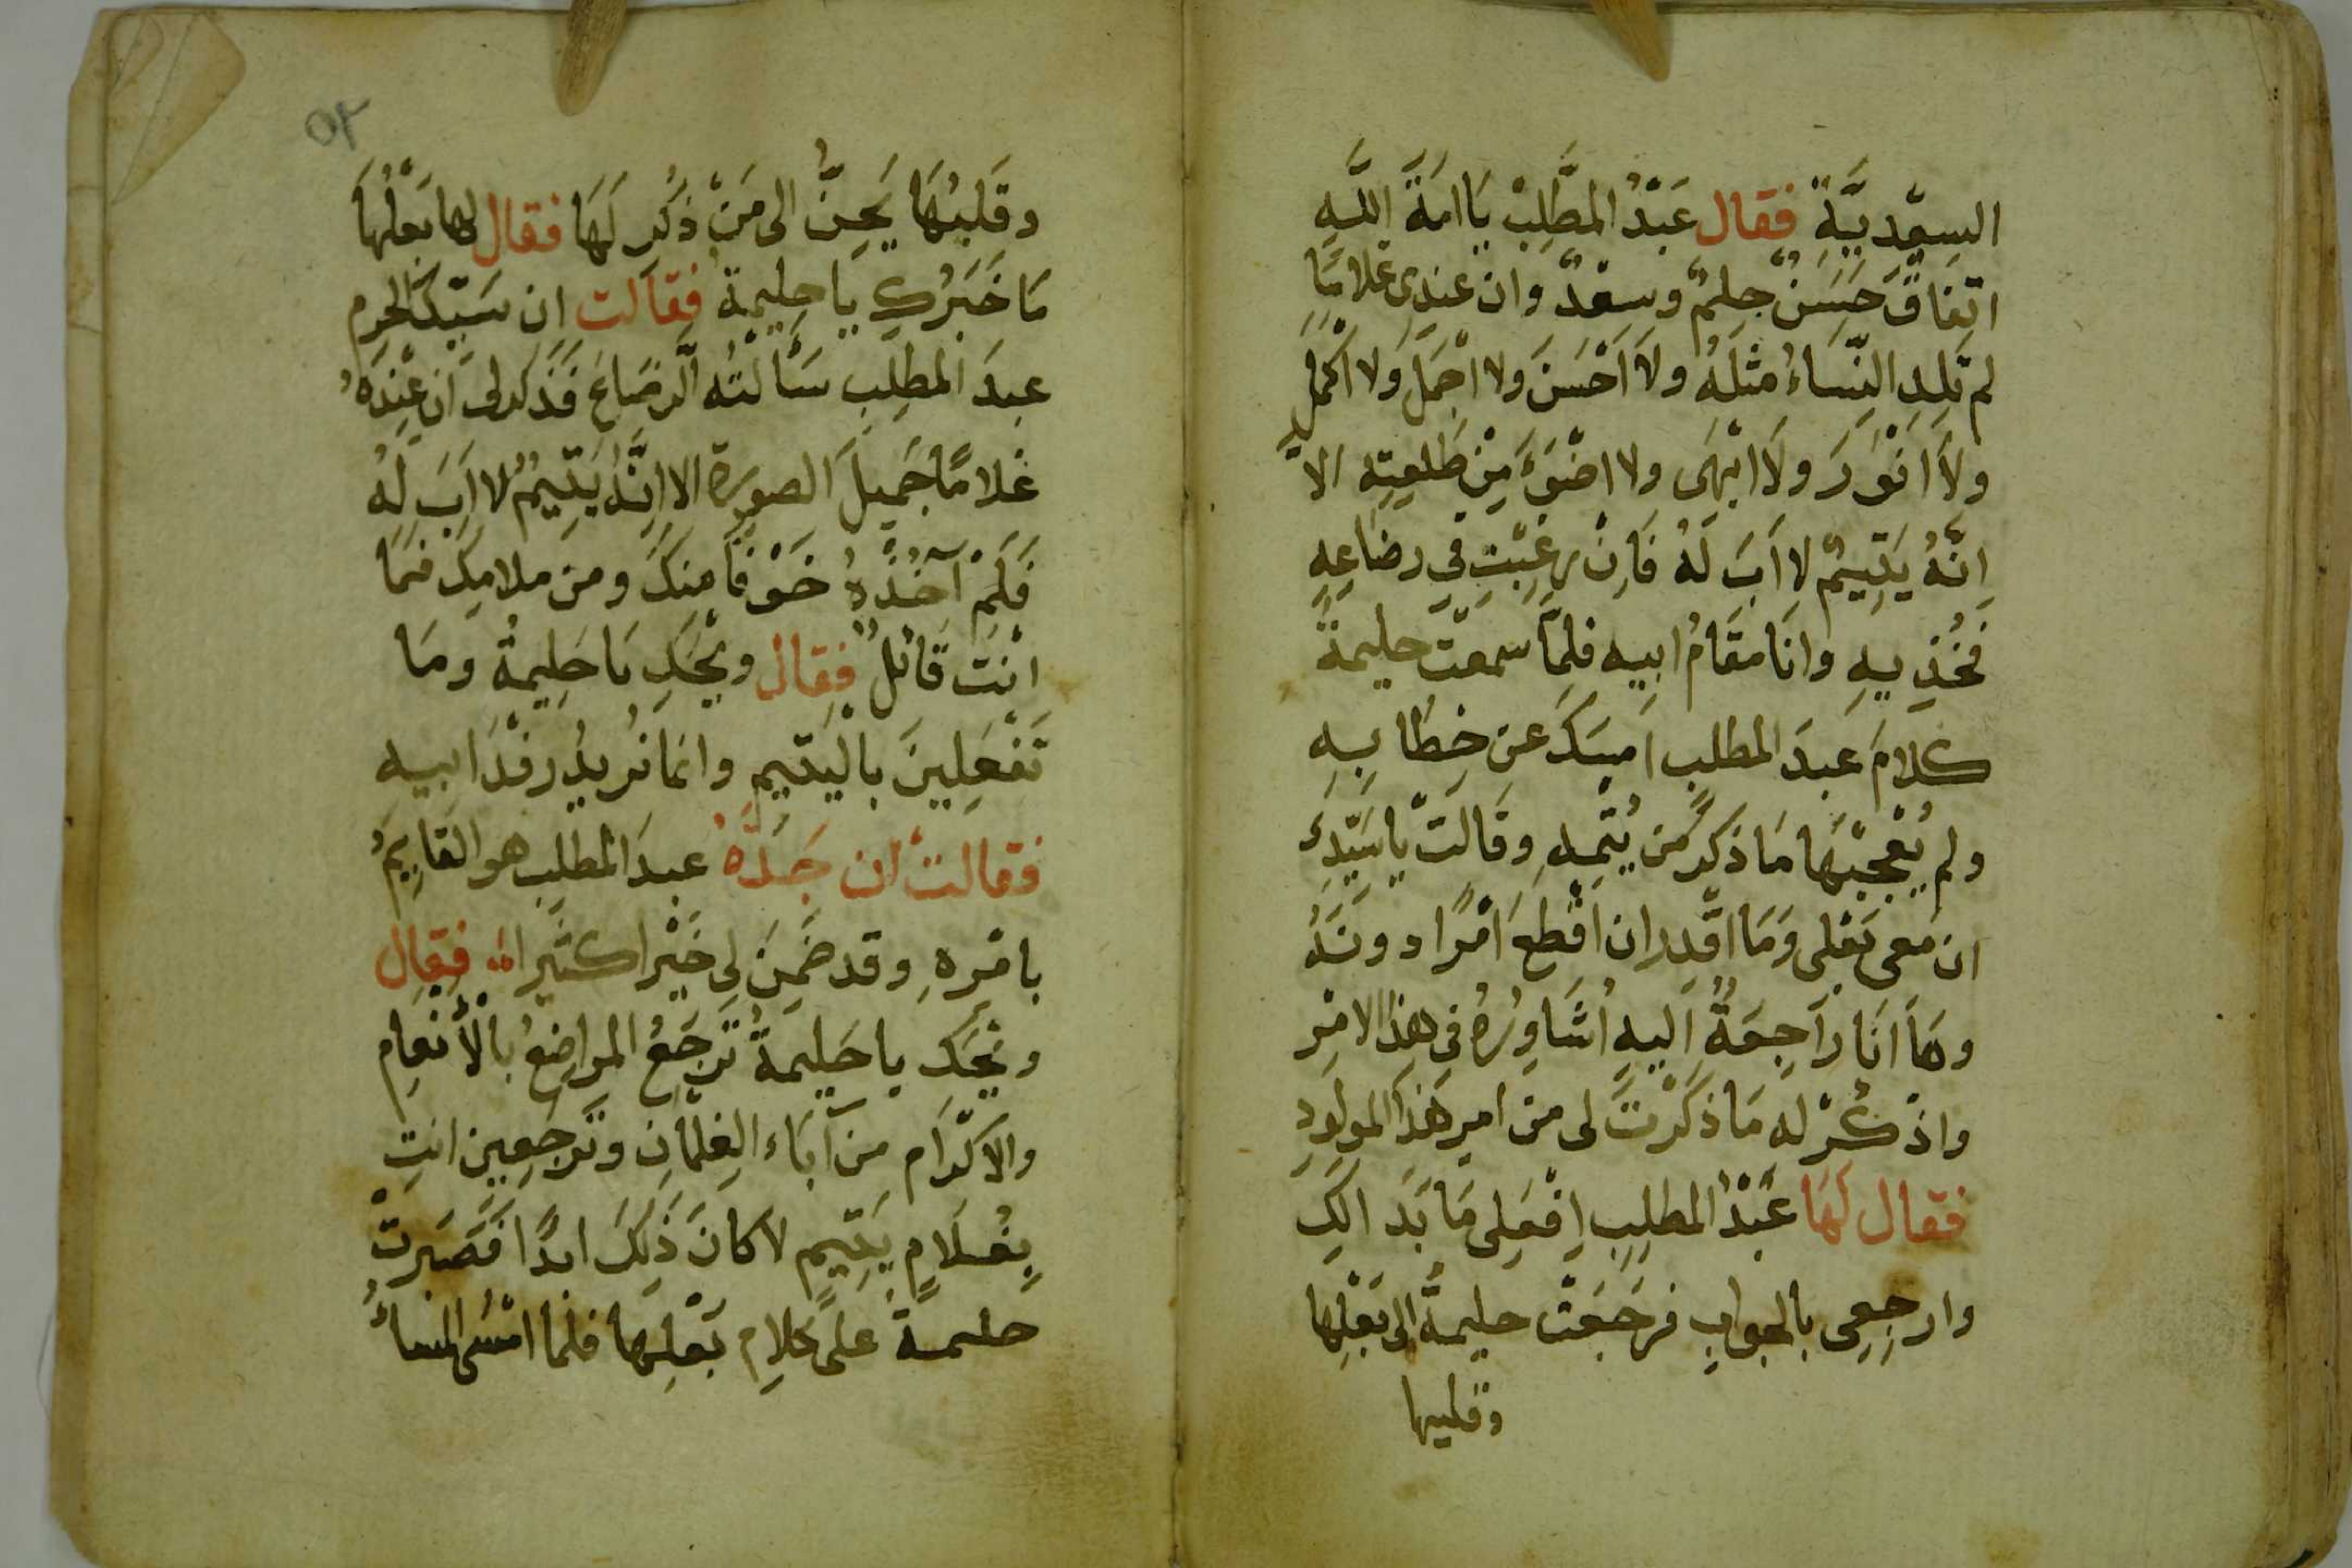 السِعْدِيَّةِ فقال عَبْدُ المطَّلِبْ يَا امَةَ اللَّهِ
اتفاقٌ حَسَنٌ حِلمٌ وسعْدٌ وان عندِى غلامًا
لم تَلِدِ النِّسَاءُ مثلَهُ ولاَ اَحْسَنَ ولا اجْمَلَ ولا اكمَلَ
ولاَ انْوَرَ ولَا ابْهَى ولا اضْوَءَ مِنْ طَلعتِه الاَّ
اِنَّهُ يَتِيمٌ لا اَبَ لَهُ فَاِنْ رغِبْتِ فى رضاعِهِ
فَخُذِيهِ وانَا مقَامُ ابِيه فلمَّا سمعَتْ حليمةُ
كلامَ عبدَ المطلب امسَكَ عن خِطَابِهِ
ولم يُعْجِبْهَا مَا ذكرَ من يُتْمِهِ وقَالَتْ يا سَيّدِى
ان معى بَعْلى وَمَا اقْدِر ان اقْطَعَ اَمْرًا دونَهُ
وهَا انَا رَاجِعَةٌ اليهِ اُشَاوِرُهُ فى هذا الامْرِ
واذْكُرْ له مَا ذكَرْتَ لى من امرِ هَذَا المولودِ
فقال لَهَا عَبْدُ المطلِبِ اِفْعَلِى مَا بَدَا لَكِ
وارجِعِى بالجوابِ فرَجَعَتْ حليمةُ الى بَعْلِها
وقلبها
٥٢
وقَلبُهَا يَحِنُّ الى مَنْ ذُكِرَ لَهَا فقال لها بَعْلُهَا
مَا خَبَرُكِ يا حليمةُ فقالت اِن سَيّدَ الحرم
عبدَ المطلِبِ سَأَلتُه الرَضَاعَ فَذَكر لى اَن عِنْدَهُ
غلامًا جَمِيلَ الصورة الا اِنَّهُ يَتِيمٌ لا اَبَ لَهُ
فَلَمْ آخُذْهُ خَوْفًا مِنكَ ومن ملامِكَ فمَا
انْتَ قَائلٌ فقال ويْحَكِ يَا حَلِيمةُ ومَا
تَفْعَلِينَ بالْيَتِيمِ وانما نُريدُ رفْدَ ابيه
فقالتْ ان جَدَّهُ عبدَ المطلب هو القايِمُ
بامْرِهِ وقد ضَمِنَ لِى خَيْرا كثيرا فقال
ويْحَكِ يا حَليمةُ تَرجَعُ المراضِعُ بالْأَنعامِ
والاكْرَام من آبَاء الغِلْمانِ وتَرجَعِين انتِ
بِغُلَامٍ يَتِيمٍ لا كانَ ذَلِكَ ابدًا فَصَبَرَتْ
حليمةُ على كلامِ بَعْلِها فلما امْسَى المساءُ